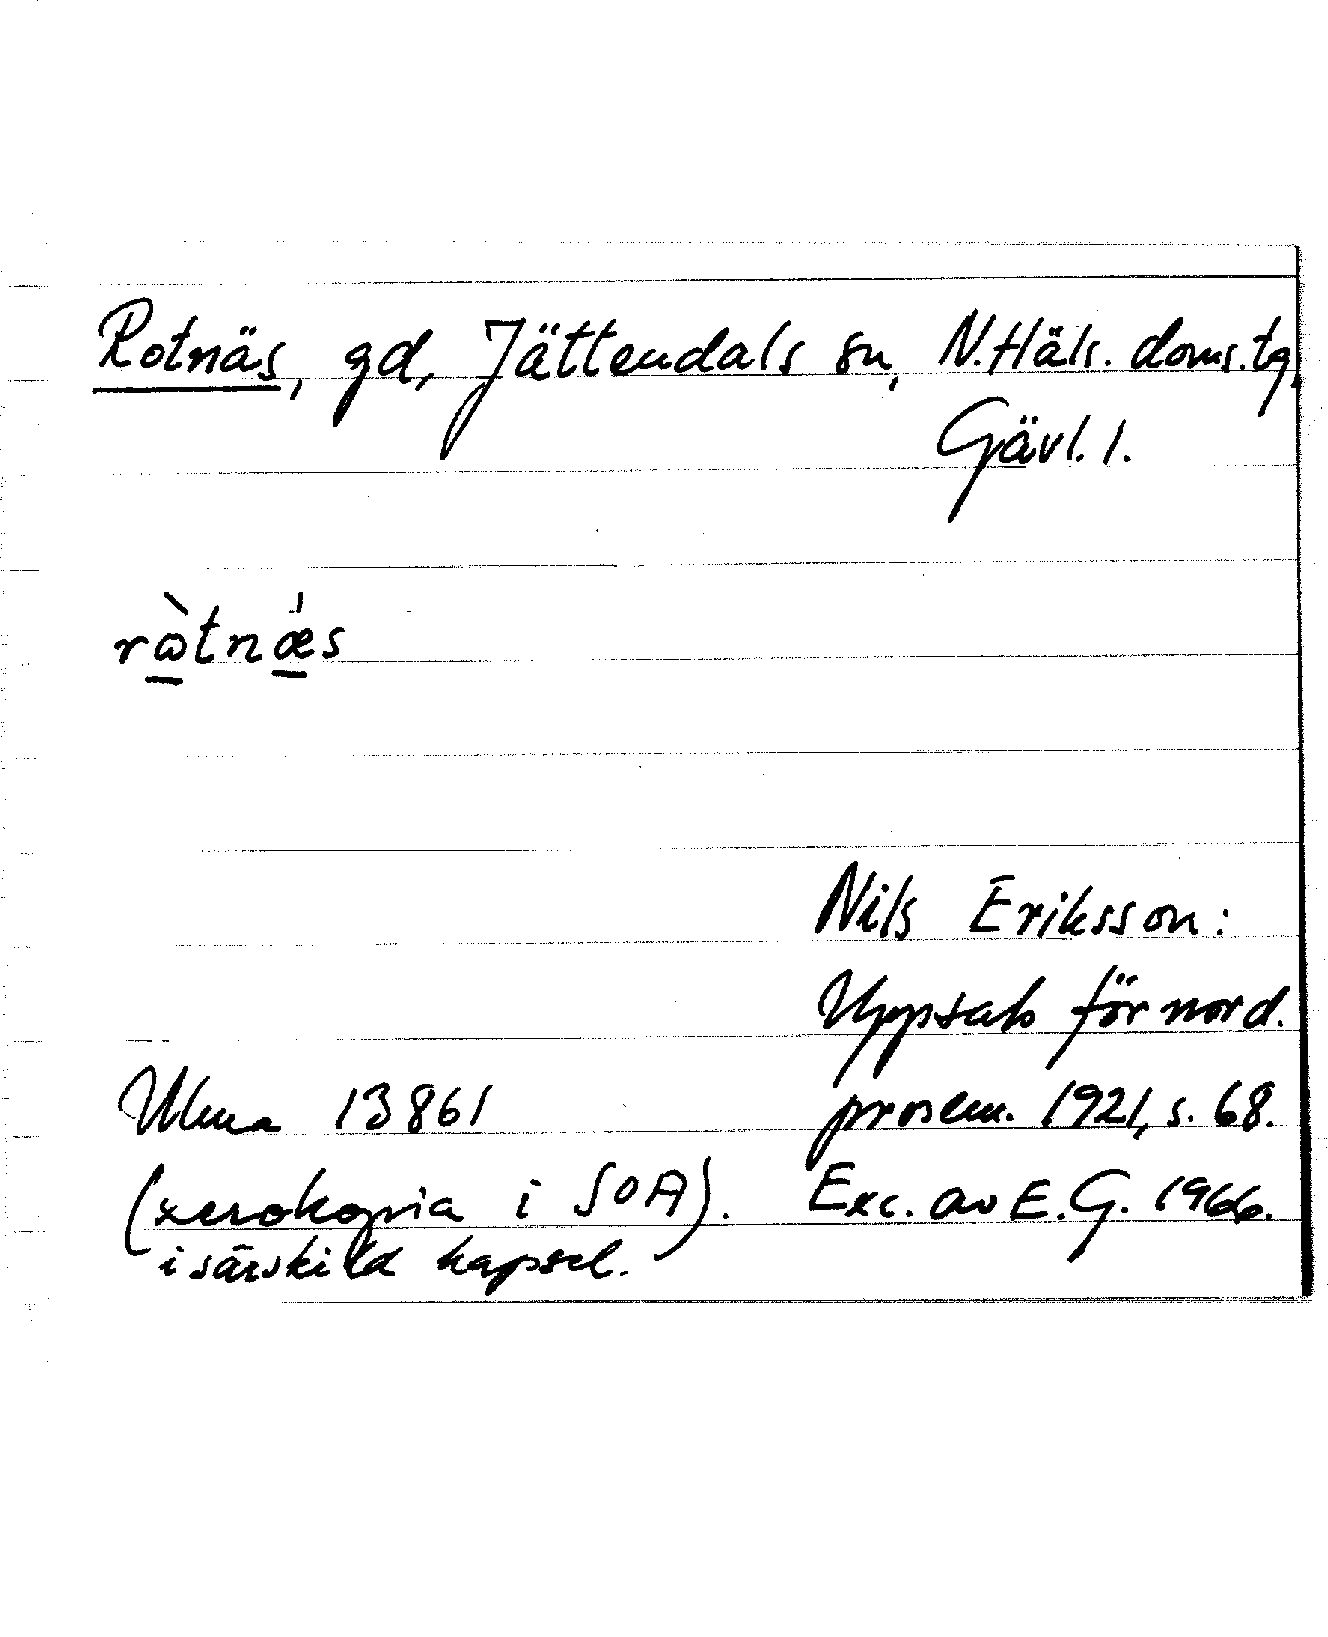 Rotnäs, gd, Jättendals sn, N. Häls. doms. tg,
Gävl. l.
rὼ̲tnǽ̲s
Nils Eriksson:
Uppsats för nord.
Ulma 13861 prosem. 1921, s. 68.
(xerokopia i SOA). Exc. av E.G. 1966.
i särskild kapsel.